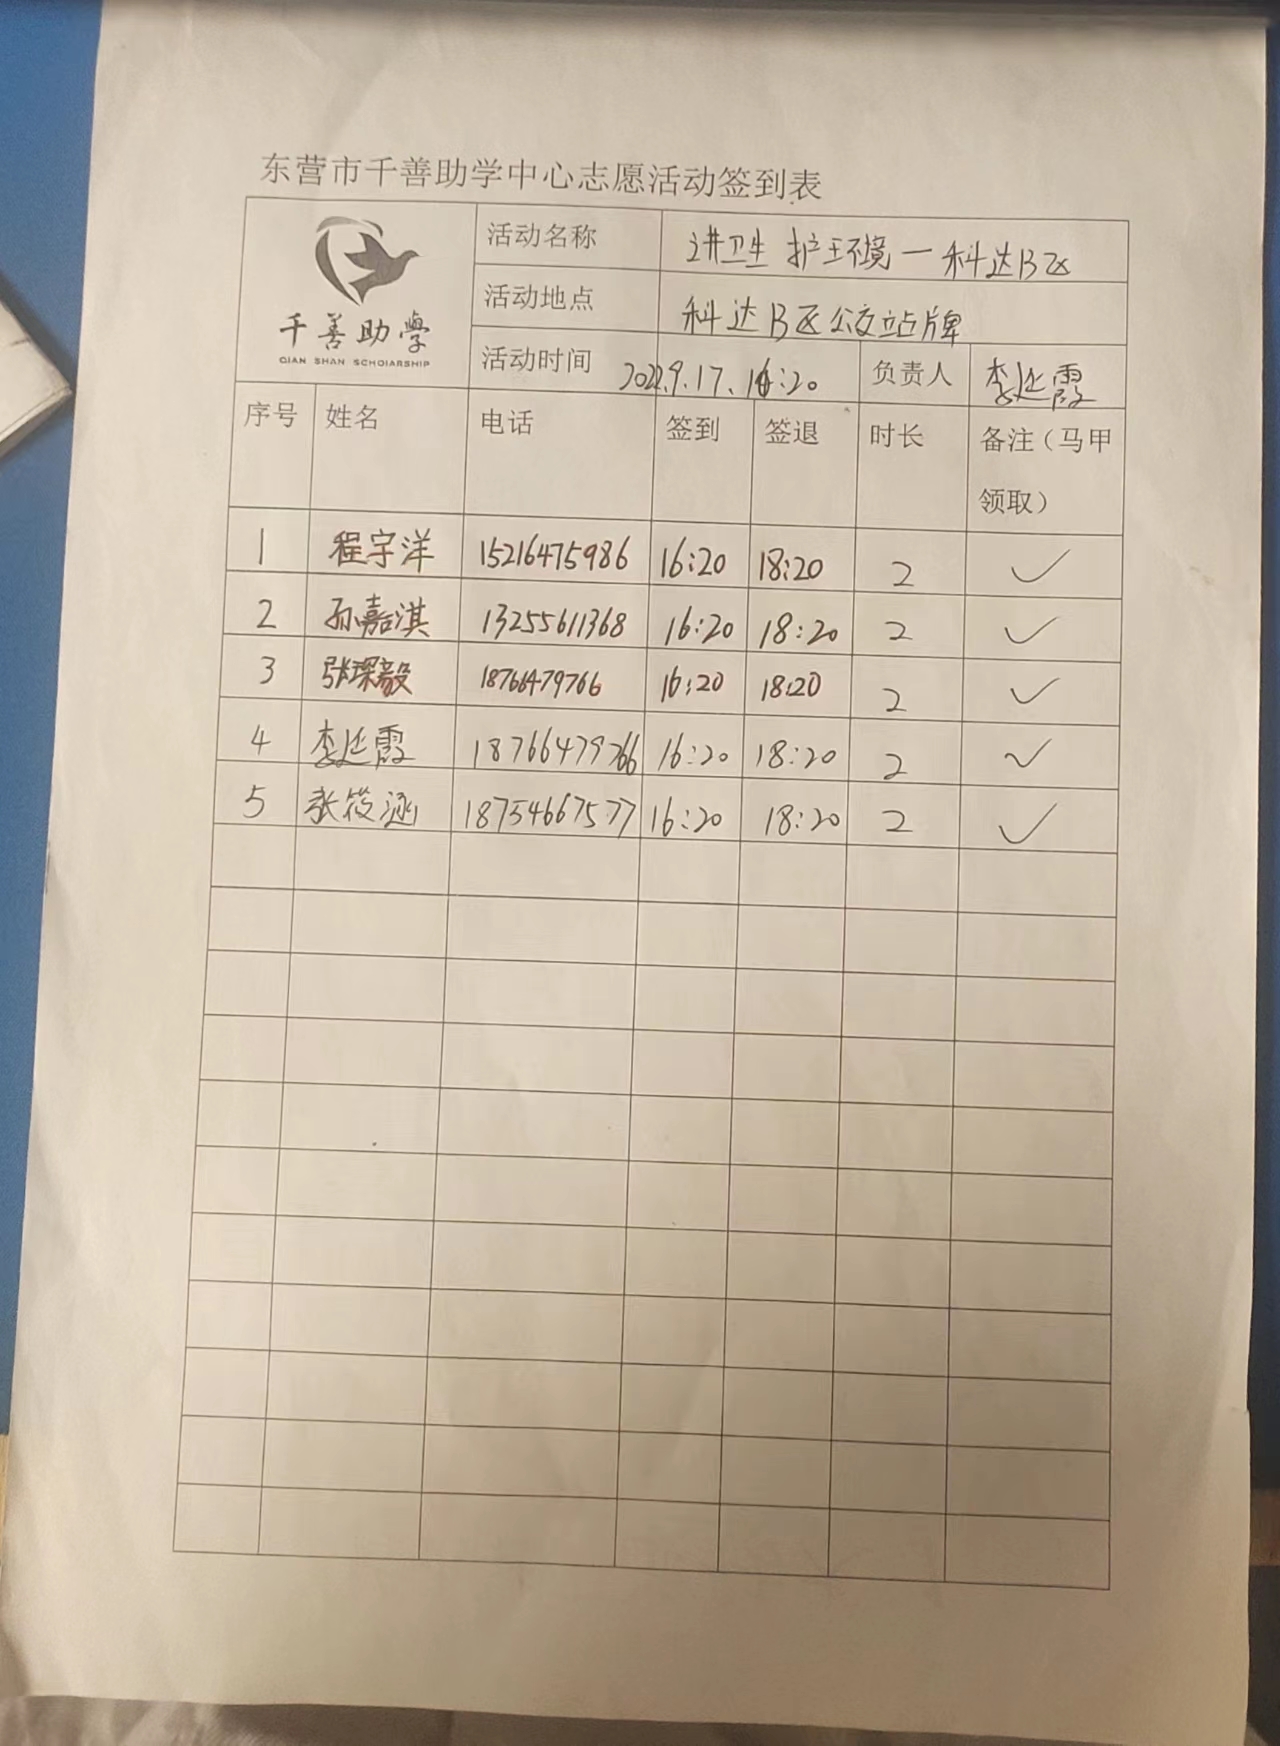 东营市千善助学中心志愿活动签到表
千善助学
QIAN SHAN SCHOIARSHIP
活动名称 讲卫生 护环境一科达B区
活动地点 科达B区公交站牌
活动时间 2022.9.17.16:20 负责人 李延霞
序号 姓名 电话 签到 签退 时长 备注（马甲
领取）
1 程宇洋 15216475986 16:20 18:20 2 ✓
2 孙嘉淇 13255611368 16:20 18:20 2 ✓
3 张琛毅 18766479766 16:20 18:20 2 ✓
4 李延霞 18766479766 16:20 18:20 2 ✓
5 张筱涵 18754667577 16:20 18:20 2 ✓